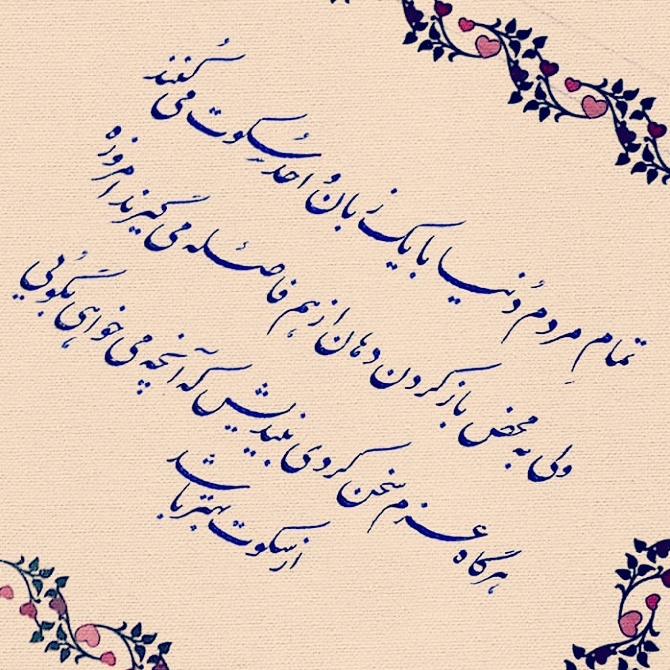 تمام مردم دُنیا با یک زبانُ احد سکوت می کُنند
ولی به محض باز کردن دهان از هم فاصله می گیرند امروزه
هرگاه عزم سخن کردی بیندیش که آنچه می خواهی بگویی
از سکوت بهتر باشد